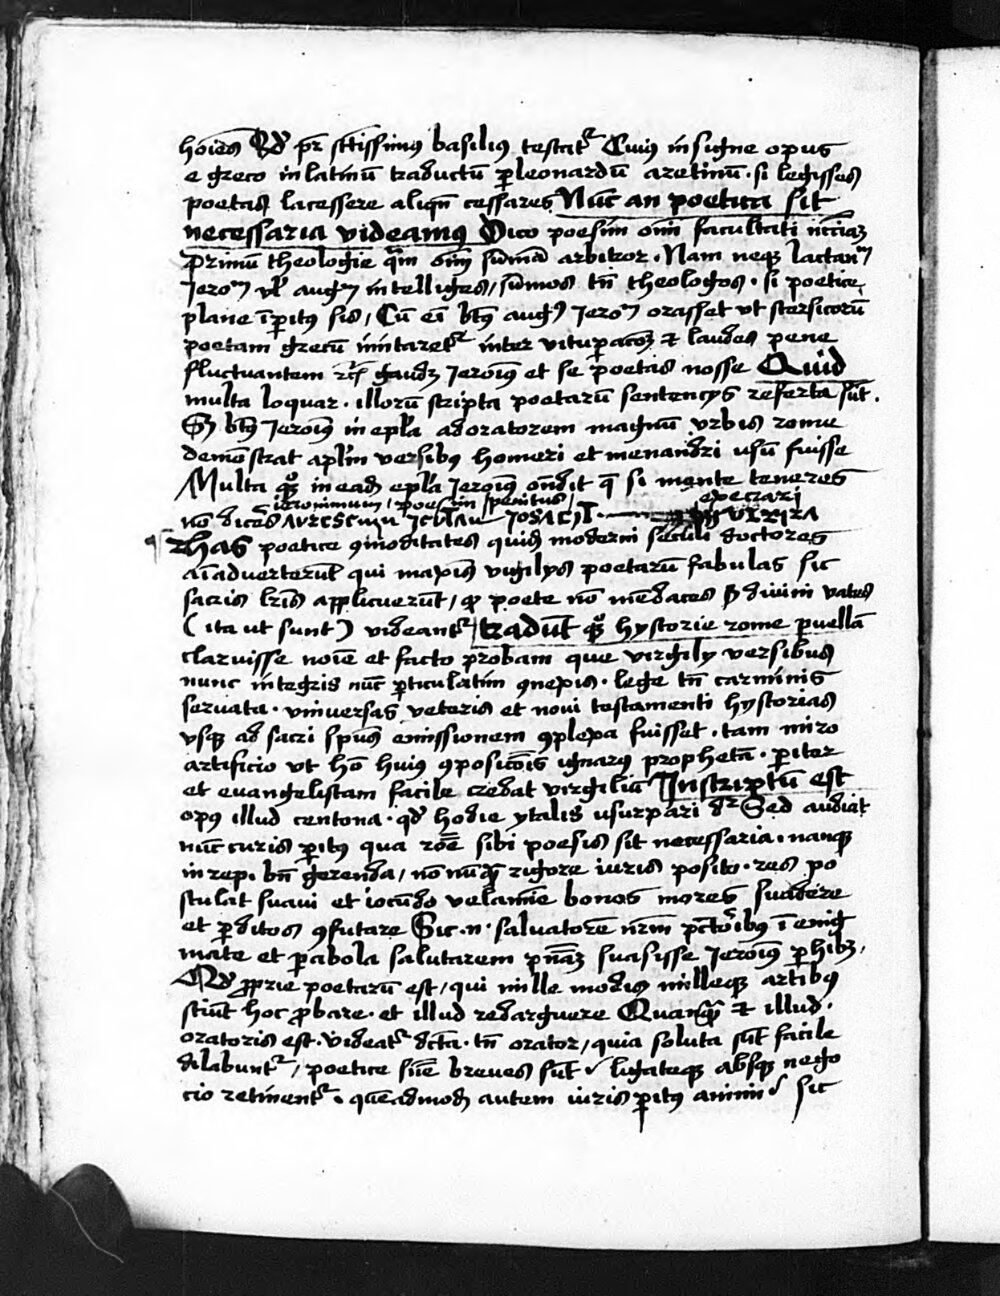 hoīes Qd pr sctissimus basilius testatr Cuius insigne opus
e greco in latinū traductū p leonardū aretinū · si legisses
poetas lacessere aliqn cessares Nūc an poetica sit
necessaria videamus Dico poesim oīm facultati ncciā
Primū theologie qm oīm sūmā arbitror · Nam neqz lactan
Jero vl aug intelliges / sūmos tn theologos · si poetice
plane īpitus sis / Cū eī btus augus Jero orasset vt stersicorū
poetam grecū imitaretr inter vitupacōz et laudes pene
fluctuantem gaudz Jeronius et se poetas nosse Quid
multa loquar · illorū scripta poetarū sentencys referta sūt ·
btus Jeronius in epla ad oratorem magnū vrbis rome
demonstrat aplm versibus homeri et menandri usū fuisse
Multa qqz in eadz epla Jeronius ondit q si mente teneres
ieronimum / poesim / penitus / execrari
nō dices
has poetice gmoditates quidz moderni seculi doctores
aīaduerterūt qui maxis vigilys poetarū fabulas sic
sacris lris applicuerūt / qp poete nō mēdaces sz diuini vates
( ita ut sunt ) videantr tradūt qqz hystorie rome puellā
claruisse noīe et facto probam que virgily versibus
nunc integris nūc pticulatim gnexis · lege tn carminis
seruata · vniuersas veteris et noui testamenti hystorias
vsqz ad sacri spūs emissionem gplexa fuisset · tam miro
artificio vt hō huius gposicōis ignarus prophetā · pariter
et euangelistam facile credat virgiliū Inscriptū est
opus illud centona · qd hodie ytalis usurpari dr Sed audiat
nūc iuris pitus qua rōe sibi poesis sit necessaria · nanqz
in rep. bn gerenda / nō nūqz rigore iuris posito · res po
stulat suaui et iocūdo velamīe bonos mores suadere
et pditos gfutare Sic · n · saluatorē nrm pctoribus ī enig
mate et pabola salutarem pnāz suasisse Jeronius phibz /
Qd pprie poetarū est / qui mille modis milleqz artibus
sciūt hoc pbare · et illud redarguere Quanq et illud ·
oratoris est · videatr dcta · tn orator / quia soluta sūt facile
dilabuntr / poetice siue breues sūt ligateqz absqz nego
cio retinentr · quēadmodz autem iuris pitus animi sic